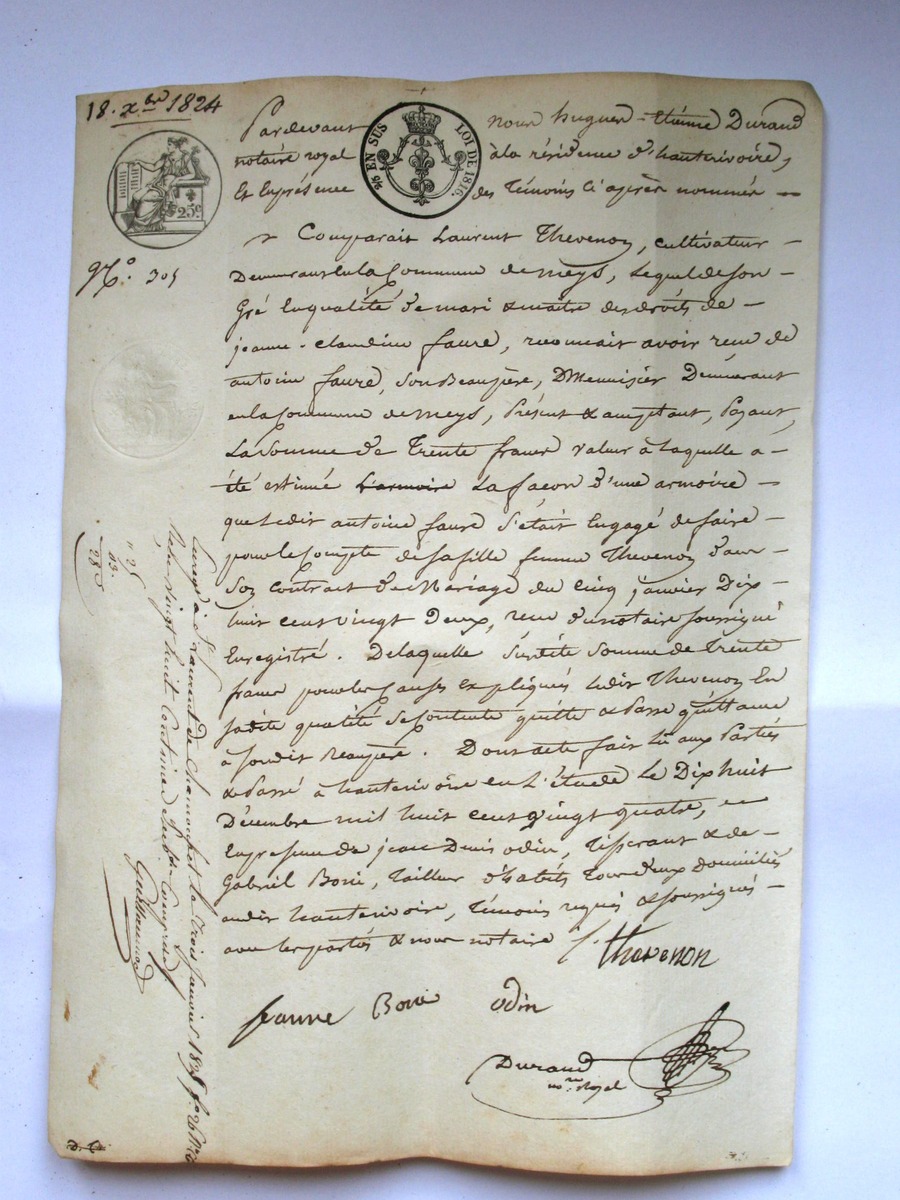 18. xbre 1824
Pardevant nous hugues-étienne Durand
notaire royal à la résidence d'hauterivoire,
Et En présence des Témoins Ci après nommés
EN SUS
LOI DE 1816.
25c
No. 305
Comparait Laurent Thevenon, cultivateur
Demeurant En la Commune de meys, Lequel de son
Gré En qualité de mari & maitre des droits de
jeanne-claudine faure, reconnait avoir reçu de
antoine faure, Son Beaupère, Menuisier Demeurant
en la Commune de meys, Présent & acceptant, Payant,
La Somme de Trente francs valeur à Laquelle a
été estimée L'armoire La façon d'une armoire
que Ledit antoine faure S'était Engagé de faire
pour le Compte de sa fille femme Thevenon dans
Son Contrat de Mariage du Cinq janvier Dix
huit cent vingt Deux, reçu du notaire soussigné
Enregistré. De laquelle Susdite Somme de Trente
francs pour les Causes Expliqués Ledit Thevenon En
sadite qualité Se Contente quitte & Passe quittance
à Sondit Beaupère. Dont acte fait Lu aux Parties
& Passé à hauterivoire en L'étude Le Dix huit
Décembre mil huit cent vingt quatre,
En présence de jean Denis odin, Tisserant & de
Gabriel Boni, Tailleur d'habits Tous Deux Domiciliés
audit hauterivoire, Témoins requis & soussignés
avec les partés & nous notaire
Thevenon
faurre Boni odin
Durand
nore Royal
"25
28c
Enregé à St Laurent de Chamousset Le Trois Janvier 1825
vingt huit Centimes Compris
D.